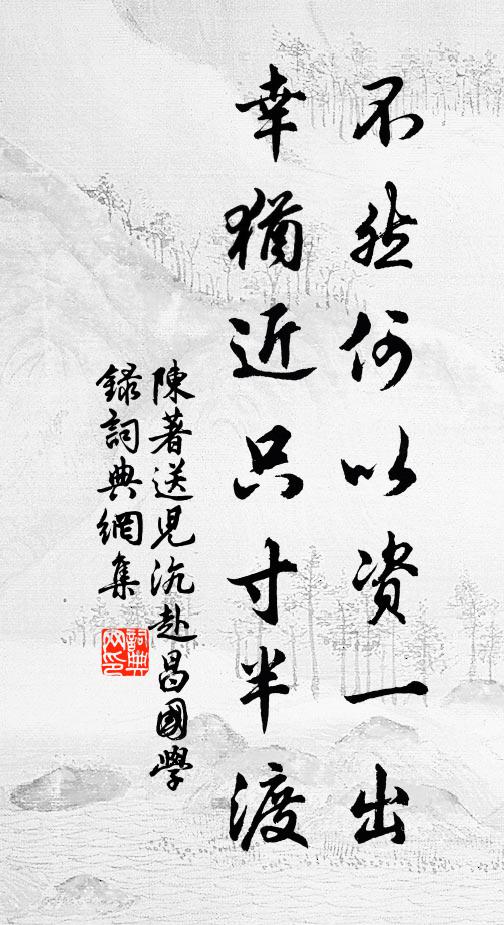 不然何以资一出
幸猶近只寸半渡
陳著送児沆赴昌國學
録詞典網集
詞典網印